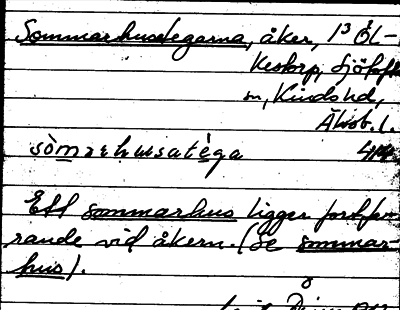 Sommarhustegarna, åker, 1³ Öl-
kestorp, Sjötof
sn, Kinds hd,
Älvsb. l.
sòmarhusatèga
Ett sommarhus ligger fortfa-
rande vid åkern. (Se sommar-
hus).